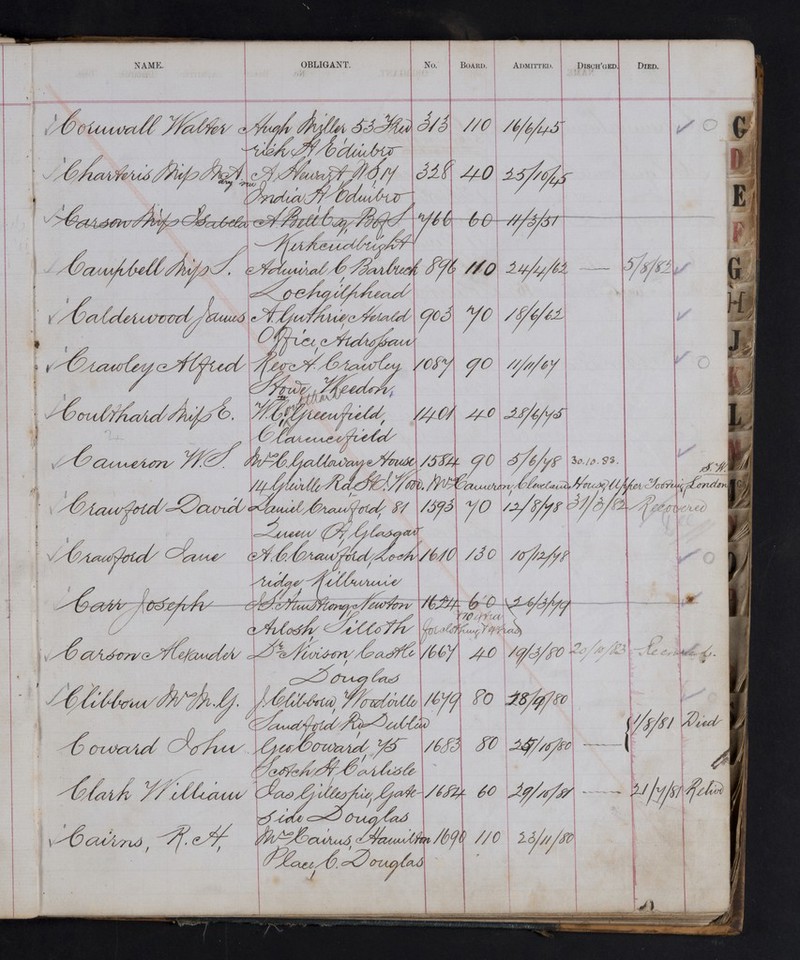 NAME. OBLIGANT. No. BOARD. ADMITTED. DISCH'GED. DIED.
Cornwall Walter Hugh Miller 53 Fred 313 110 16/6/45
rick St Edinbro
Charteris Miss A. Stewart 328 40 25/10/45
India St Edinbro
Carson Miss Isabela A Bell Esq, B of S 766 60 11/3/51
Kirkcudbright
Campbell Miss J. Admiral C. Barbreck 896 110 24/4/62 — 5/8/82
Lochgilphead
Calderwood James A. Guthrie, Herald 903 70 18/6/62
Office, Ardrossan
Crawley Alfred Rev A. Crawley 1087 90 11/11/67
Stowe, Weedon,
Coulthard Miss E. W. C. Greenfield, 1401 40 28/6/75
Clarencefield
Cameron W. S. Mrs C. Galloway House 1584 90 5/6/78 30.10.83.
14 Greville Rd St J. Wood. Mrs Cameron, Cleveland House, Upper Tooting, London S.W.
Crawford David Daniel Crawford, 81 1593 70 12/8/78 31/3/82 Recovered
Queen St, Glasgow
Crawford Jane A. C. Crawford, Loch 1610 130 10/12/78
ridge Kilbirnie
Carr Joseph J S Armstrong Newton 1624 60 26/3/79
Arlosh Silloth
Carson Alexander Dr Nivison, Castle 1667 40 19/3/80
Douglas
Clibborn Mr M. G. J. Clibborn, Woodville 1679 80 28/9/80
Sandford Rd Dublin
1/8/81 Died
Coward John Geo Coward, 75 1683 80 25/10/80 —
Scotch St Carlisle
Clark William Jas Gillespie, Gate 1684 60 29/10/81 — 21/7/81
side Douglas
Cairns, R. A, Mrs Cairns, Hamilton 1690 110 23/11/80
Place, C. Douglas
C
D
E
F
G
H
J
K
L
M